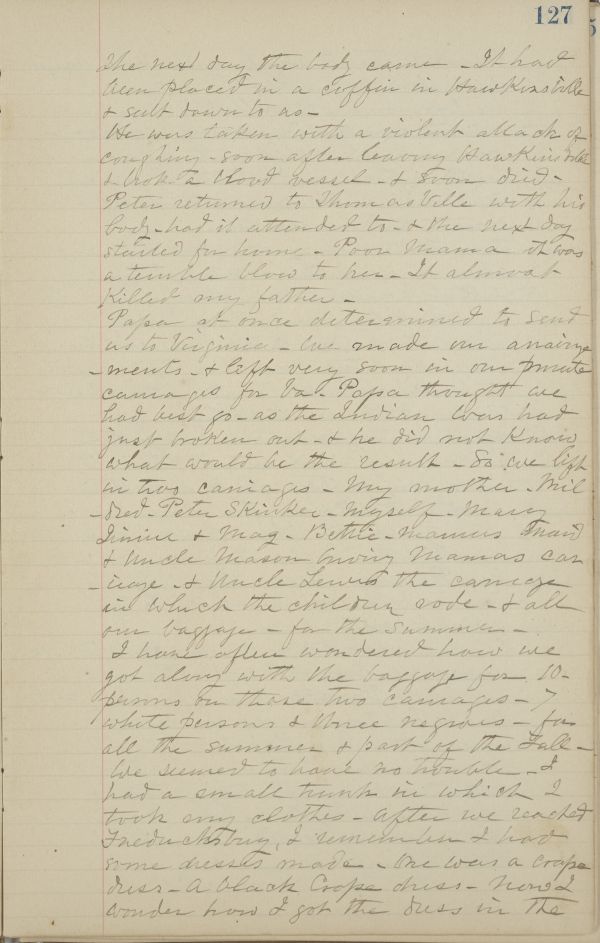 127
The next day the body came - It had
been placed in a coffin in Hawkinsville
& sent down to us -
He was taken with a violent attack of
coughing - soon after leaving Hawkinsville
& broke a blood vessel - & soon died -
Peter returned to Thomasville with his
body - had it attended to - & the next day
started for home - Poor Mama it was
a terrible blow to her - It almost
killed my father -
Papa at once determined to send
us to Virginia - We made our arrange
-ments - & left very soon in our private
carriages for Va - Papa thought we
had best go - as the Indian Wars had
just broken out - & he did not know
what would be the result - So we left
in two carriages - My mother - Mil
-dred - Peter Skinker - myself - Mary
& Mag - Bettie - Mamas maid
& Uncle Mason driving Mamas car
-riage - & Uncle Lewis the carriage
in which the children rode - & all
our baggage - for the summer -
I have often wondered how we
got along with the baggage for 10 -
persons on those two carriages - 7
white persons & three negroes - for
all the summer & part of the Fall -
We seemed to have no trouble - I
had a small trunk in which I
took my clothes - After we reached
Fredericksburg, I remember I had
some dresses made - One was a crape
dress - A black Crape dress - Now I
wonder how I got the dress in the